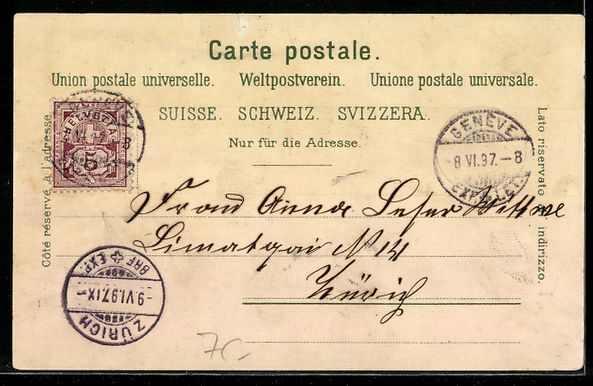 Carte postale.
Union postale universelle. Weltpostverein. Unione postale universale.
SUISSE. SCHWEIZ. SVIZZERA.
Nur für die Adresse.
Côté réservé à l'adresse.
Lato riservato indirizzo.
HELVETIA
5
GENÈVE
8 VI.97.-8
Frau Anna Wittwe
Limatqai N 14
Zürich
ZÜRICH
9.VI.97.IX-
BRF EXP.
7.-